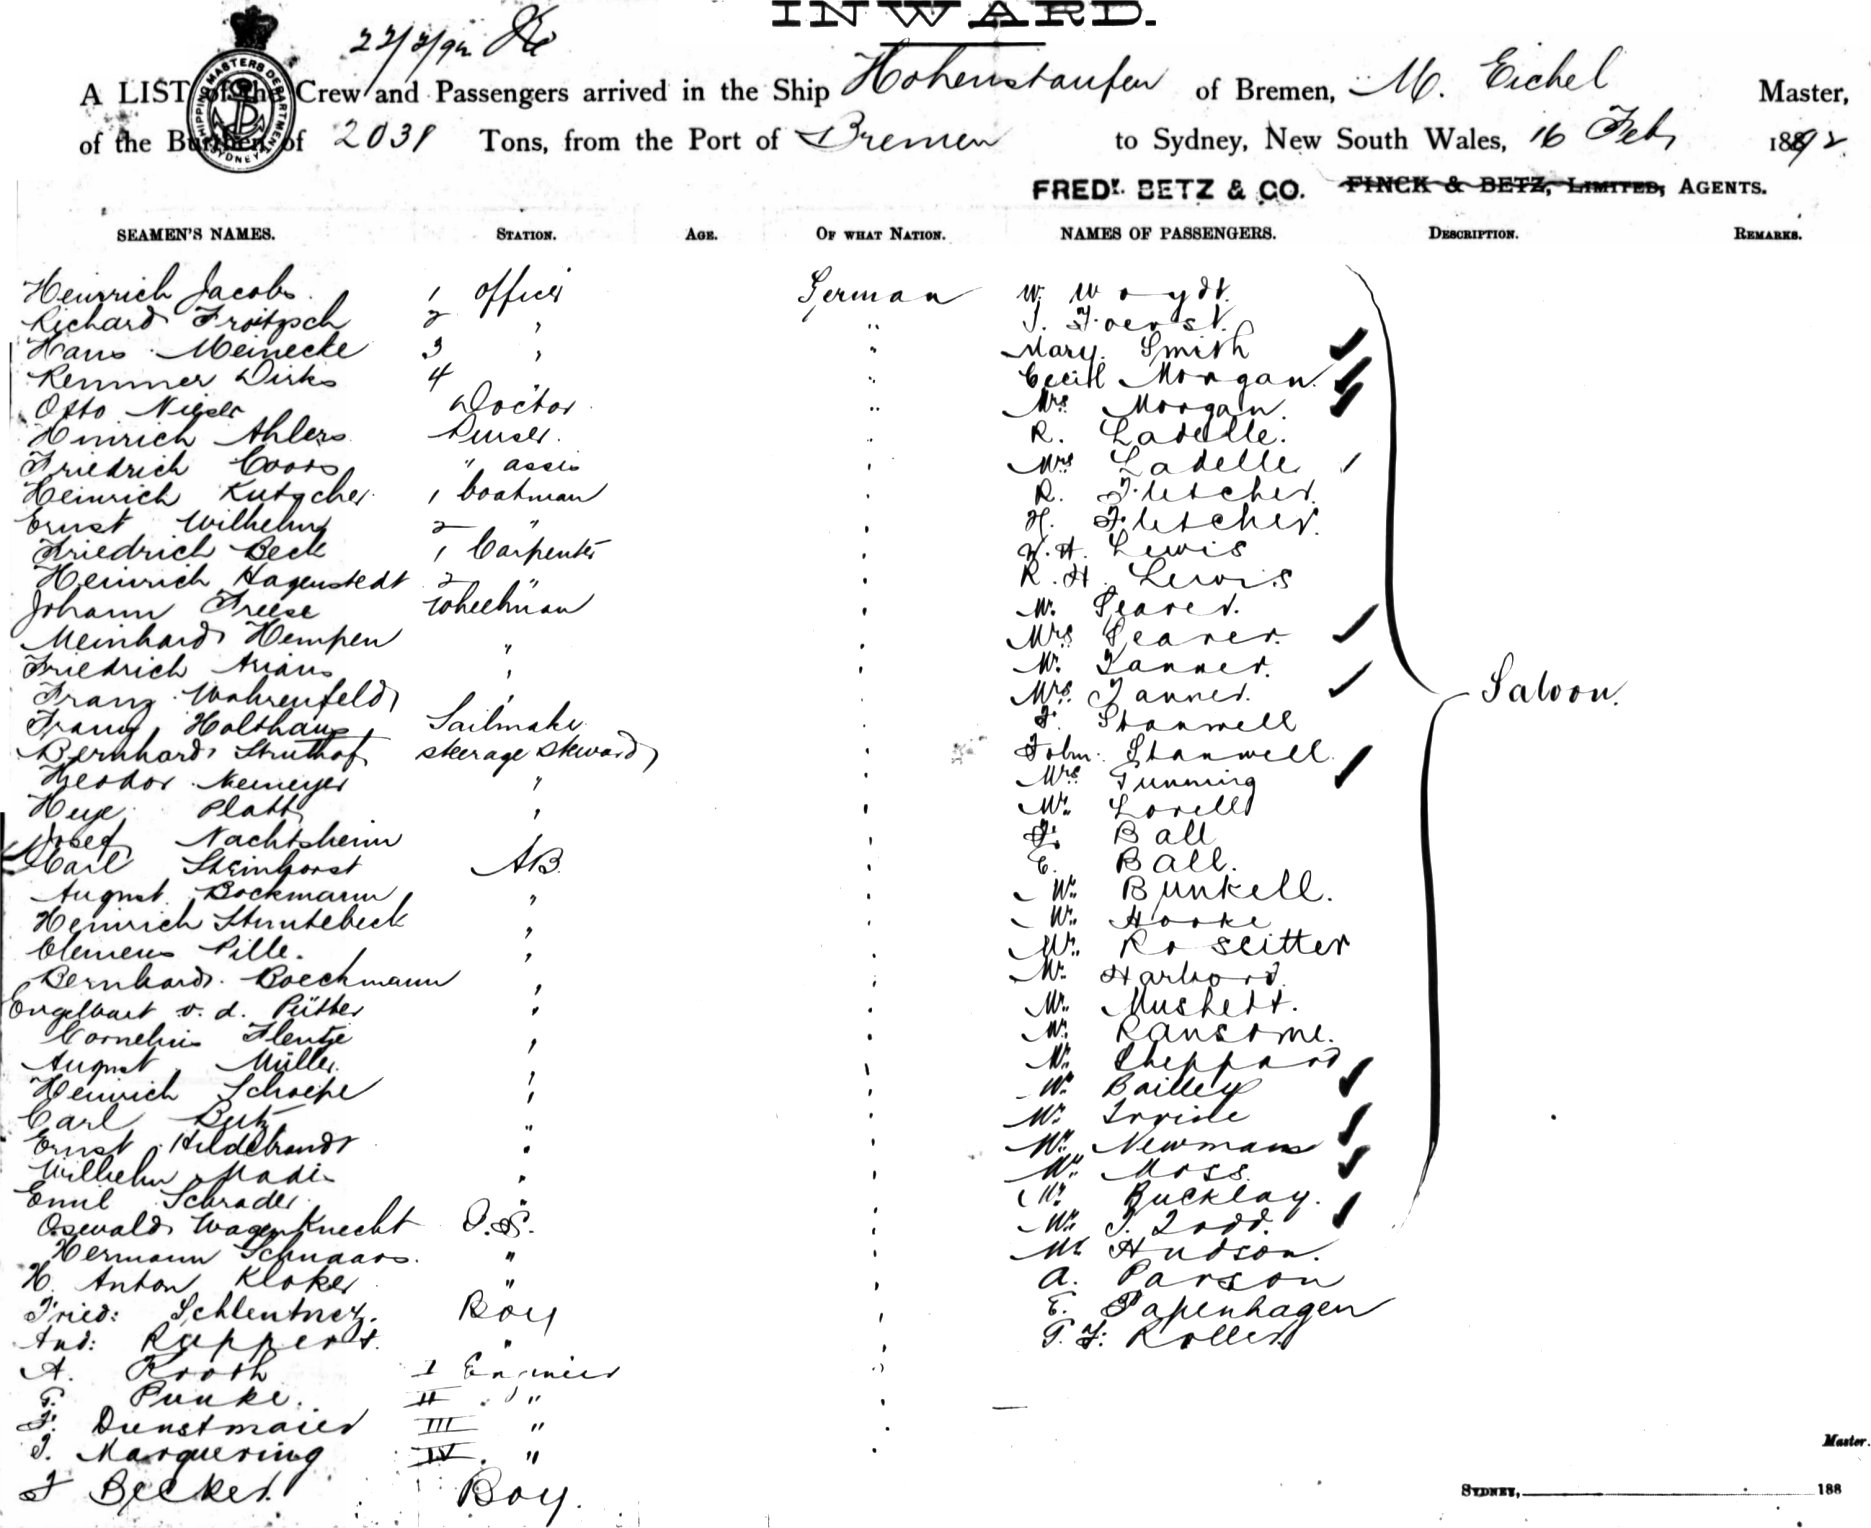 INWARD.
22/2/92
SHIPPING MASTERS DEPARTMENT SYDNEY
A LIST of the Crew and Passengers arrived in the Ship Hohenstaufen of Bremen, M. Eichel Master,
of the Burthen of 2031 Tons, from the Port of Bremen to Sydney, New South Wales, 16 Feb, 1892
FREDK. BETZ & CO. FINCK & BETZ, LIMITED, AGENTS.
SEAMEN'S NAMES. STATION. AGE. OF WHAT NATION. NAMES OF PASSENGERS. DESCRIPTION. REMARKS.
Heinrich Jacobs. 1 officer German W.
Richard Froitzsch 2 " " J. Foerst.
Hans Meinecke 3 " " Mary Smith
Remmer Dirks 4 " Cecill Morgan.
Otto Doctor " Mrs. Morgan.
Hinrich Ahlers Purser. " R. Ladelle.
Friedrich Coors " assis " Mrs Ladelle
Heinrich Kutscher 1 boatman " R. Fletcher.
Ernst Wilhelm 2 " " H. Fletcher.
Friedrich Beck 1 Carpenter " W. H. Lewis
Heinrich Hagenstedt 2 " " R. H. Lewis
Johann Freese Wheelman " Mr. Searer.
Meinhard Hempen " " Mrs Searer.
Friedrich Arians " " Mr. Tanner.
Franz Wahrenfeld " " Mrs. Tanner. Saloon.
Franz Holthaus Sailmaker " F. Stanwell
Bernhard Struthof steerage steward " John Stanwell
Theodor Niemeyer " " Mrs. Tunning
Heye Platte " " Mr. Lovell
Josef Nachtsheim " F. Ball
Carl Steinhorst AB. " E. Ball.
August Bockmann " " Mr. Bunkell.
Heinrich Stuntebeck " " Mr. Hooke
Clemens Pille. " " Mr. Roseitter
Bernhard Boeckmann " " Mr. Harbord
Engelbart v. d. Pütter " " Mr. Mushett.
Cornelius Flentje " " Mr. Ransome.
August Müller. " " Mr. Sheppard
Heinrich Schoepe " " Mr. Bailley
Carl Butz " " Mr. Irvine
Ernst Hildebrandt " " Mr. Newmann
Wilhelm Madi " " Mr. Moss.
Emil Schrader " " Mr. Bucklay.
Oswald Wagenknecht O.S. " Mr. J. Todd.
Hermann Schnaars. " " Mr Hudson.
H. Anton Kloker " " A. Parson
Fried: Schlentner. Boy " E. Papenhagen
And: Ruppert. " " G. F. Roller
A. Kroth I Engineer "
G. Punke. II " "
F. Dunstmaier III " "
J. Marquering IV " "
J Becker. Boy.
Master.
SYDNEY, 188